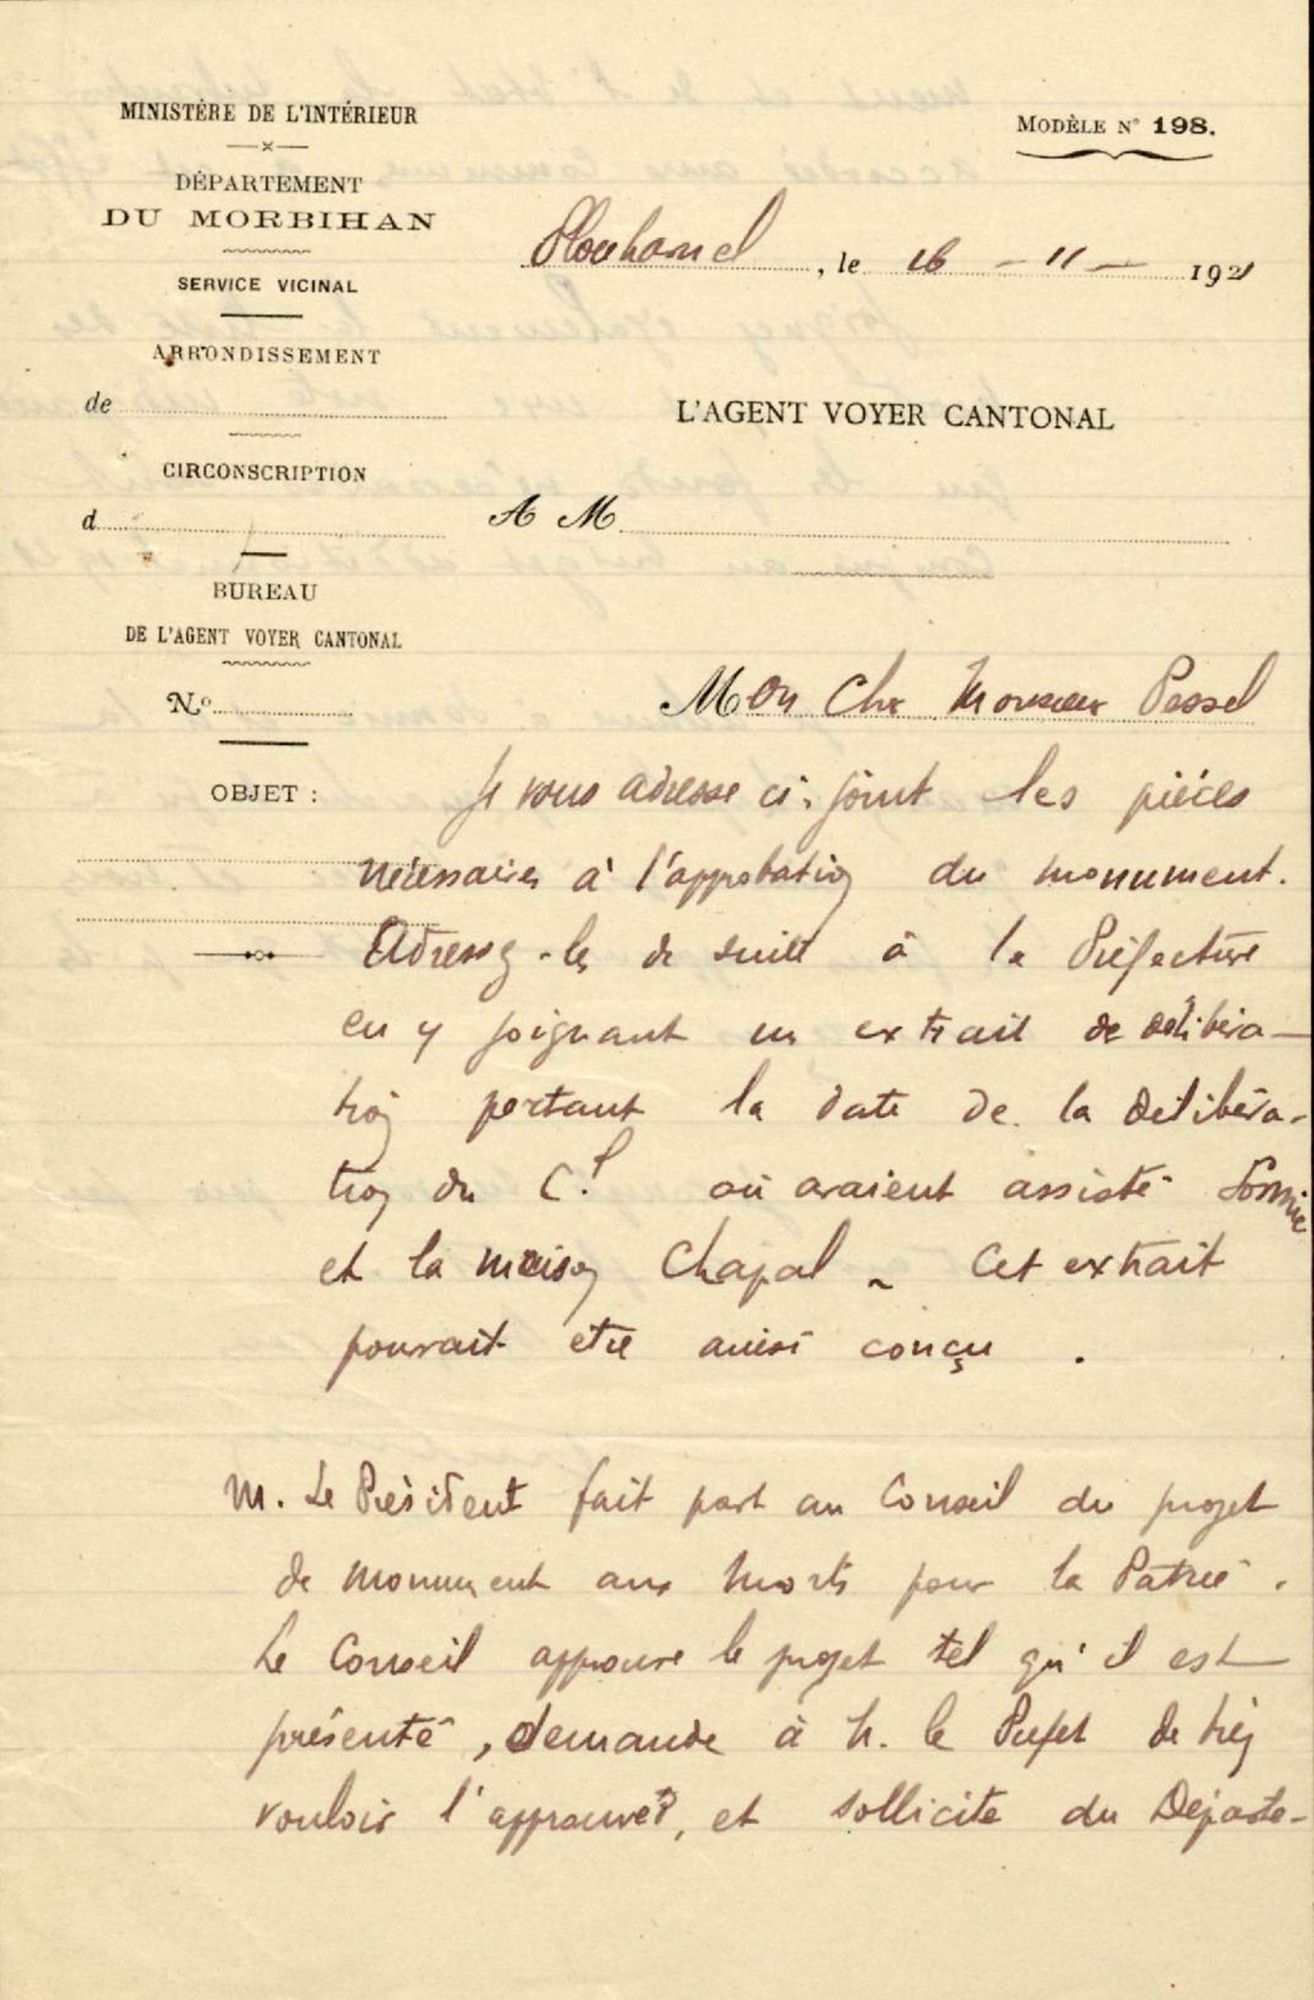 MINISTÈRE DE L'INTÉRIEUR
MODÈLE N° 198.
DÉPARTEMENT
DU MORBIHAN
Plouharnel, le 16 - 11 - 1921
SERVICE VICINAL
ARRONDISSEMENT
de
L'AGENT VOYER CANTONAL
CIRCONSCRIPTION
d
A M
BUREAU
DE L'AGENT VOYER CANTONAL
N°
Mon Cher Monsieur Pessel
OBJET :
Je vous adresse ci-joint les pièces
nécessaires à l'approbation du monument.
Adressez-les de suite à la Préfecture
en y joignant un extrait de délibéra-
tion portant la date de la délibéra-
tion du C.l où avaient assisté
et la maison Chapal - Cet extrait
pourrait être ainsi conçu .
M. Le Président fait part au Conseil du projet
de monument aux morts pour la Patrie .
Le Conseil approuve le projet tel qu'il est
présenté, demande à M. le Préfet de bien
vouloir l'approuver, et sollicite du Départe-